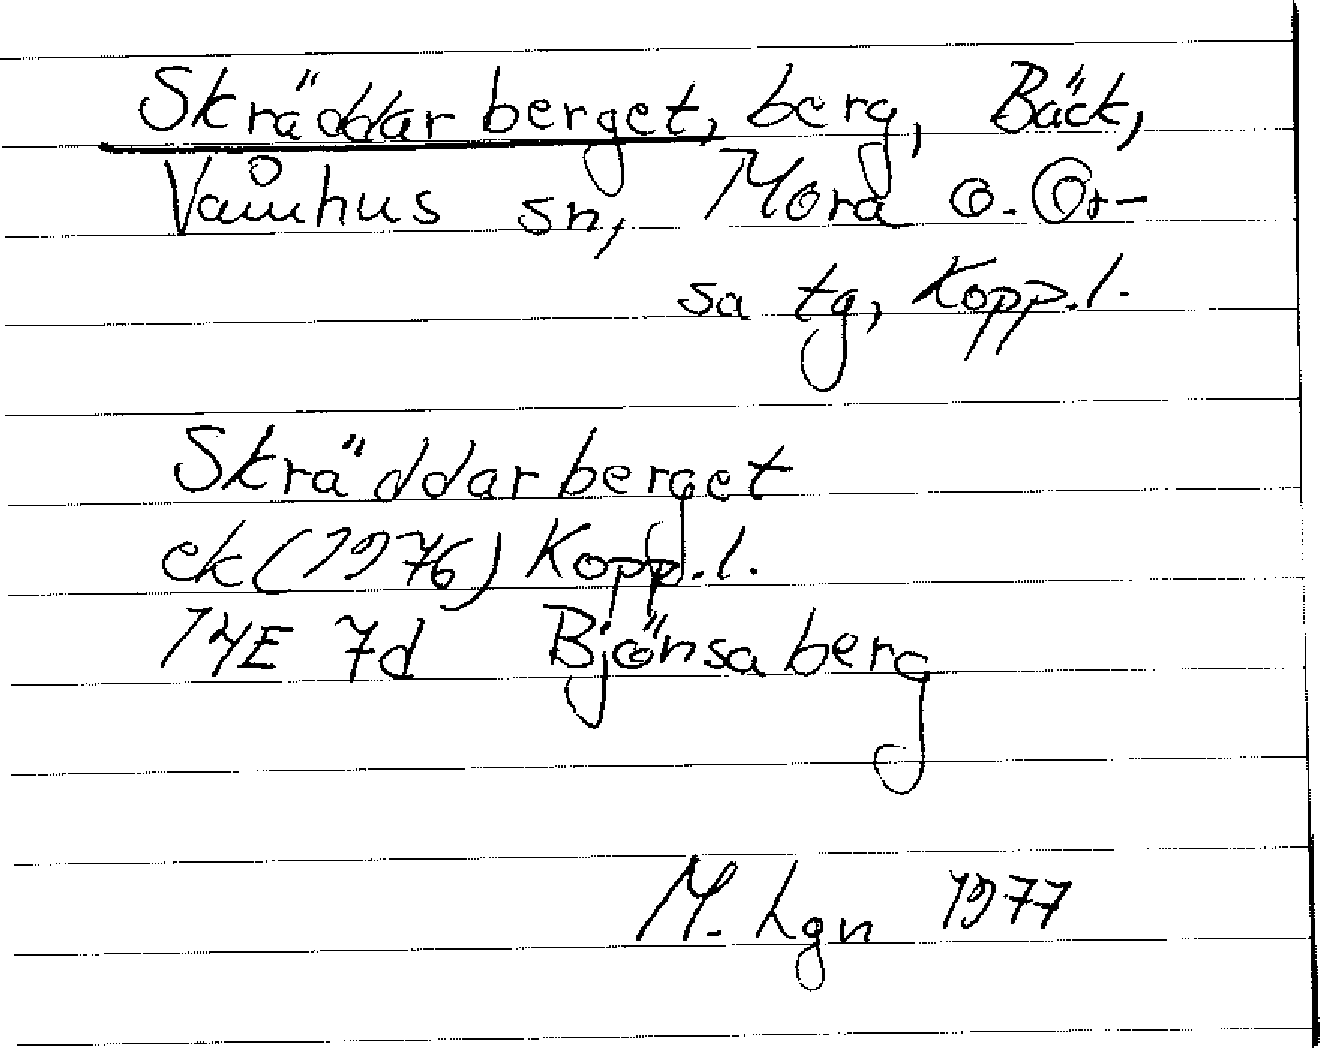 Skräddarberget, berg, Bäck,
Våmhus sn, Mora o. Or-
sa tg, Kopp.l.
Skräddarberget
ek (1976) Kopp.l.
14E 7d Björnsaberg
M. Lgn 1977